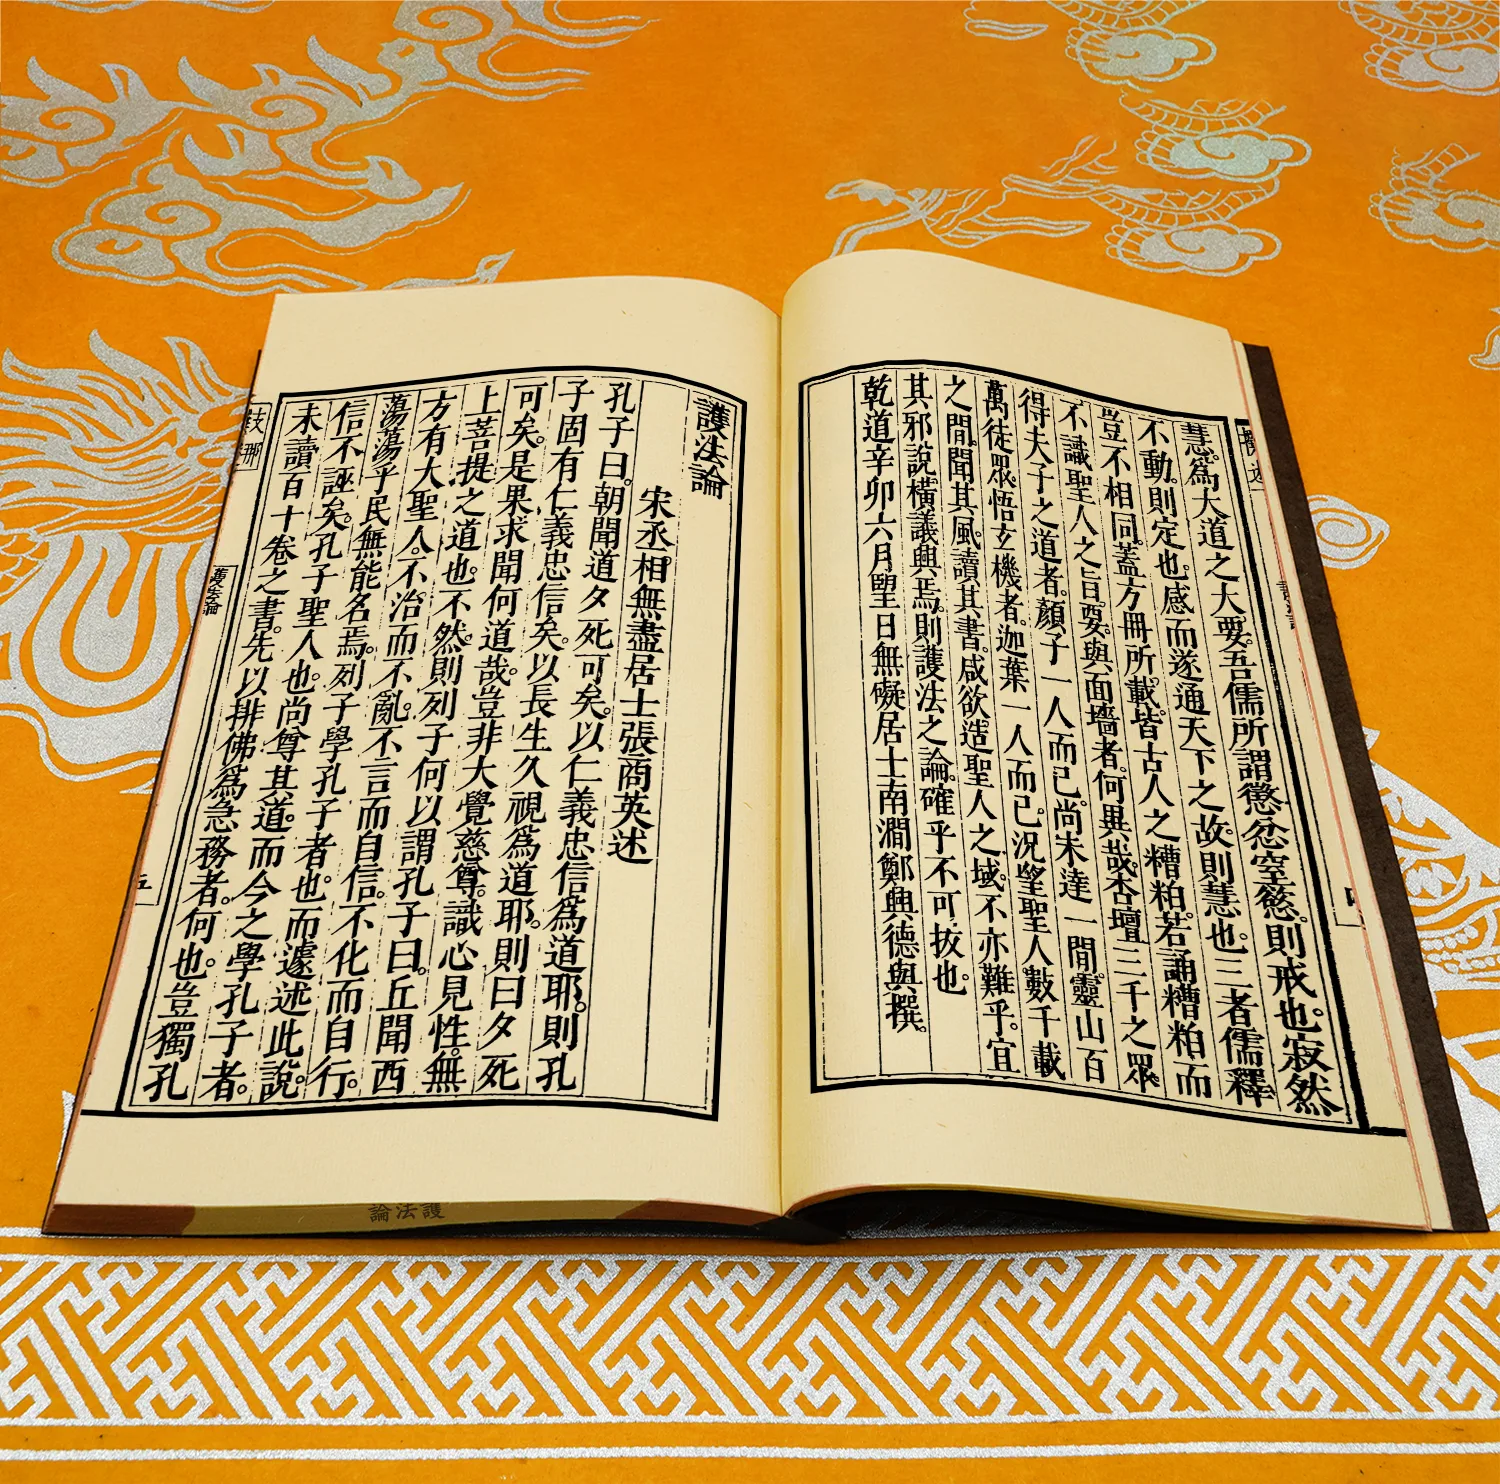 慧。爲大道之大要。吾儒所謂懲忿窒慾。則戒也。寂然
不動。則定也。感而遂通天下之故。則慧也。三者儒釋
豈不相同。蓋方冊所載。皆古人之糟粕。若誦糟粕而
不識聖人之旨要。與面墻者。何異哉。杏壇三千之眾。
得夫子之道者。顏子一人而已。尚未達一閒。靈山百
萬徒眾。悟玄機者。迦葉一人而已。況望聖人數千載
之閒。聞其風。讀其書。咸欲造聖人之域。不亦難乎。宜
其邪說橫議興焉。則護法之論。確乎不可拔也。
乾道辛卯六月望日無礙居士南澗鄭興德與撰。
護法論
宋丞相無盡居士張商英述
孔子曰。朝聞道夕死可矣。以仁義忠信爲道耶。則孔
子固有仁義忠信矣。以長生久視爲道耶。則曰夕死
可矣。是果求聞何道哉。豈非大覺慈尊。識心見性。無
上菩提之道也。不然。則列子何以謂孔子曰。丘聞西
方有大聖人。不治而不亂。不言而自信。不化而自行。
蕩蕩乎民無能名焉。列子學孔子者也。而遽述此說。
信不誣矣。孔子聖人也。尚尊其道。而今之學孔子者。
未讀百十卷之書。先以排佛爲急務者。何也。豈獨孔
護法論
五
護法論